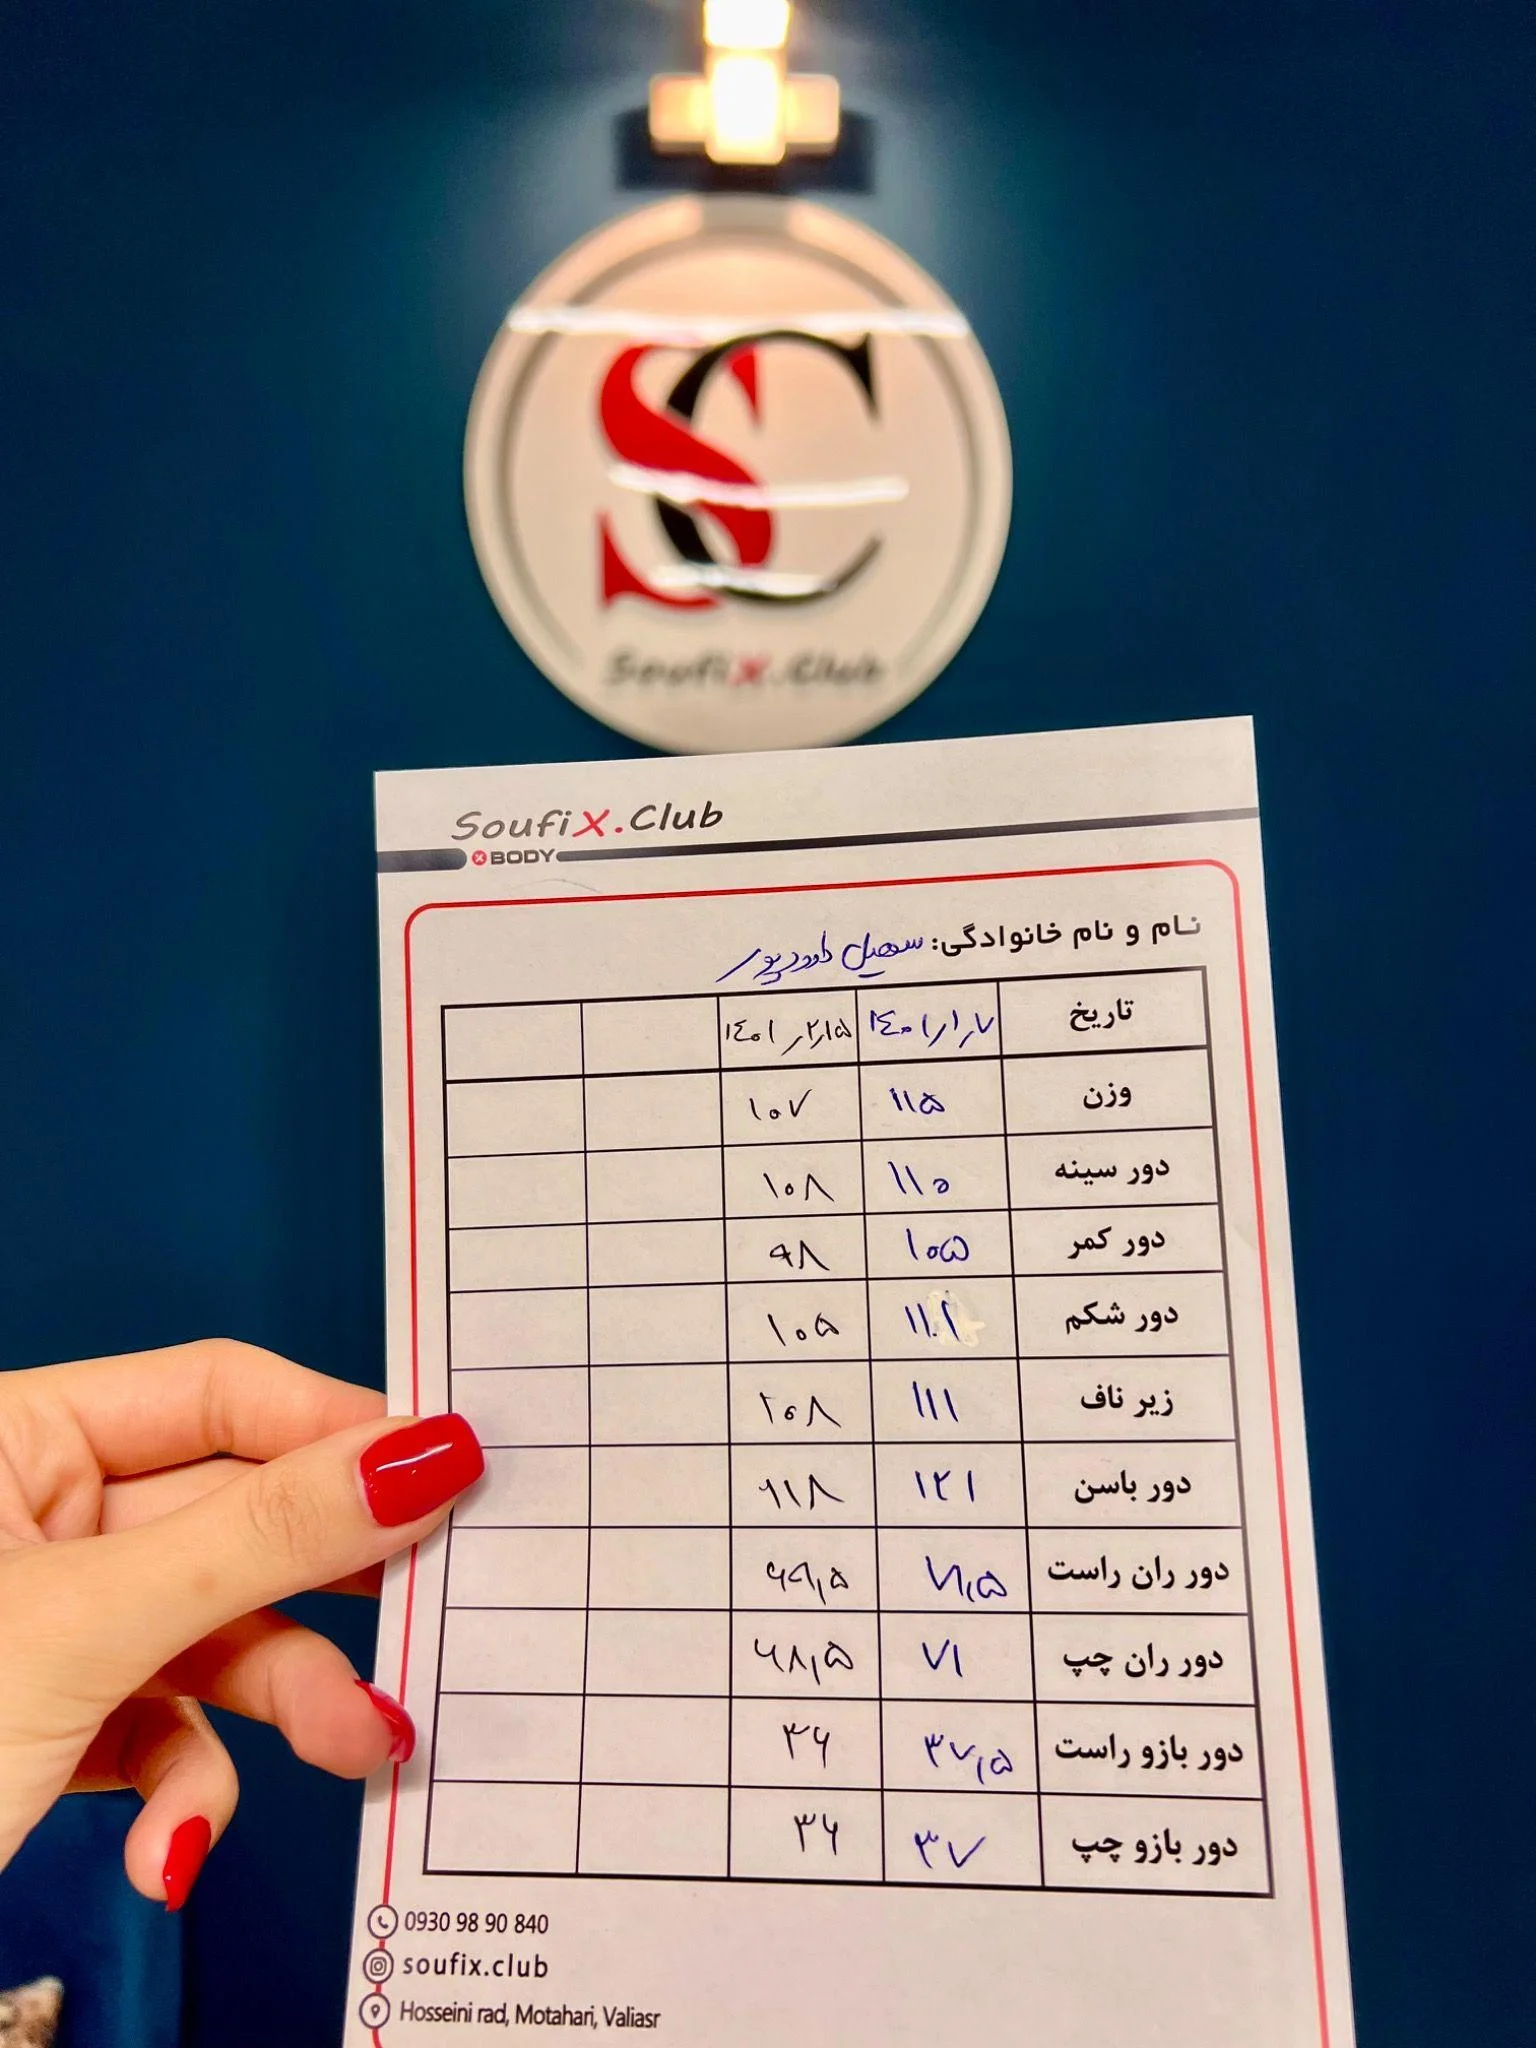 SC
SoufiX.Club
SoufiX.Club
X BODY
نام و نام خانوادگی: سهیل داوودپور
تاریخ ۱۴۰۱/۱/۷ ۱۴۰۱/۲/۱۵
وزن ۱۱۵ ۱۰۷
دور سینه ۱۱۰ ۱۰۸
دور کمر ۱۰۵ ۹۸
دور شکم ۱۰۵
زیر ناف ۱۱۱ ۱۰۸
دور باسن ۱۲۱ ۱۱۸
دور ران راست ۷۱,۵ ۶۹,۵
دور ران چپ ۷۱ ۶۸,۵
دور بازو راست ۳۷,۵ ۳۶
دور بازو چپ ۳۷ ۳۶
0930 98 90 840
soufix.club
Hosseini rad, Motahari, Valiasr